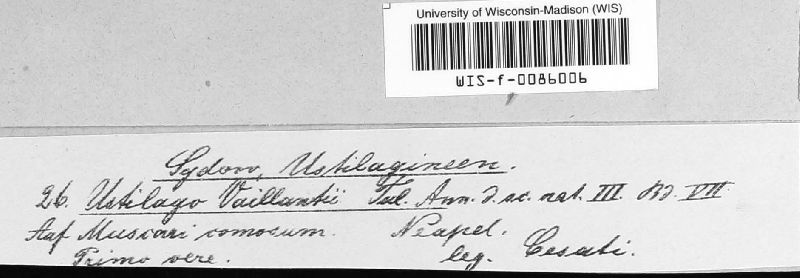 University of Wisconsin-Madison (WIS)
WIS-f-0086006
Sydow, Ustilagineen.
26. Ustilago Vaillantii Tul. Ann. d. sc. nat. III. Bd. VII.
Auf Muscari comosum. Neapel.
Primo vere. leg. Cesati.